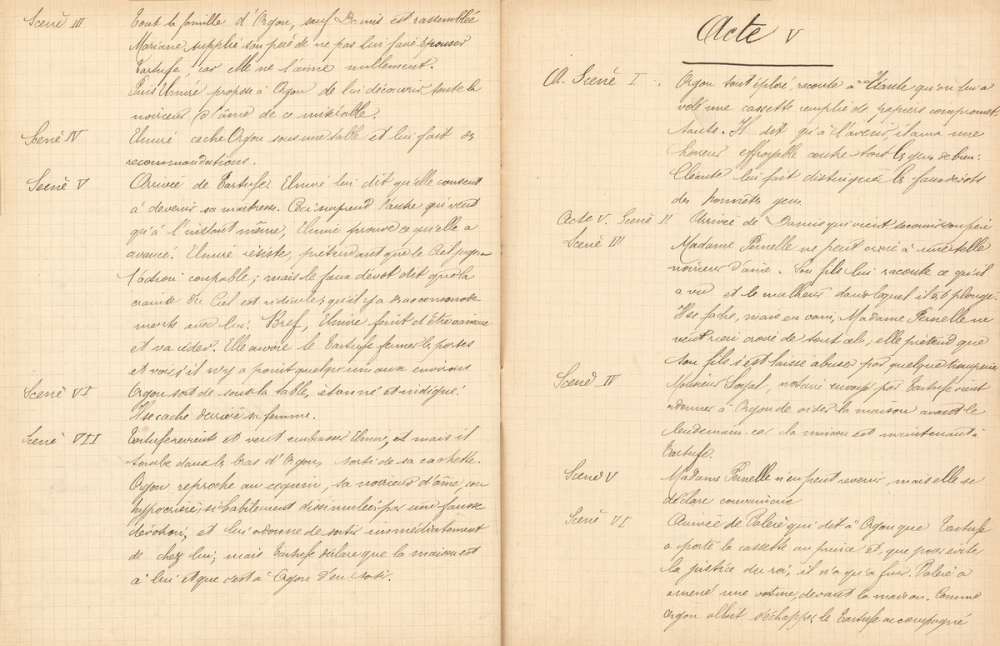 Scenè III Tout la famille d'Orgon, sauf Damis est rassemblée
Mariane supplie son père de ne pas lui faire épouser
Tartufe, car elle ne l'aime nullement.
Puis Elmire propose à Orgon de lui découvrir toute la
noirceur d'âme de ce misérable.
Scenè IV Elmire cache Orgon sous une table et lui fait des
recommandations.
Scenè V Arrivée de Tartufe. Elmire lui dit qu'elle consent
à devenir sa maitresse. Ceci surprend l'autre qui veut
qu'à l'instant même, Elmire prouve ce qu'elle a
avancé. Elmire résiste, prétendant que le Ciel
l'action coupable; mais le faux dévot dit que la
crainte du Ciel est ridicule; qu'il y a des accommode
ments avec lui. Bref, Elmire feint d'être
et va céder. Elle envoie le Tartufe fermer les portes
et voir s'il n'y a point quelqu'un aux environs
Scenè VI Orgon sort de sous la table, étonné et indigné.
Il se cache derrière sa femme.
Scenè VII Tartufe revient et veut embrasser Elmire, et mais il
tombe dans les bras d'Orgon, sorti de sa cachette.
Orgon reproche au coquin, sa noirceur d'âme, son
hypocrisie, si habilement dissimulées par une fausse
dévotion; et lui ordonne de sortir immédiatement
de chez lui; mais Tartufe déclare que la maison est
à lui et que c'est à Orgon d'en sortir.
Acte V
A. Scenè I. Orgon tout éploré, raconte à Cléante qu'on lui a
volé une cassette remplie de papiers compromet-
tants. Il dit qu'à l'avenir, il aura une
horreur effroyable contre tout les gens de bien:
Cléante lui fait distinguer les faux dévots
des honnêtes gens.
Acte V. Scenè II Arrivée de Damis qui vient secourir son père
Scenè III Madame Pernelle ne peut croire à une telle
noirceur d'âme. Son fils lui raconte ce qu'il
a vu et le malheur dans lequel il est plongé.
Il se fache, mais en vain, Madame Pernelle ne
veut rien croire de tout cela; elle prétend que
son fils s'est laissé abuser par quelque tromperie
Scenè IV Monsieur Loyal, notaire envoyé par Tartufe vient
ordonner à Orgon de vider la maison avant le
lendemain car la maison est maintenant à
Tartufe.
Scenè V Madame Pernelle n'en peut revenir, mais elle se
déclare convaincue
Scenè VI Arrivée de Valère qui dit à Orgon que Tartufe
a porté la cassette au prince et, que pour éviter
la justice du roi, il n'a qu'à fuir. Valère a
amené une voiture, devant la maison. Comme
Orgon allait s'échapper, le Tartufe accompagné